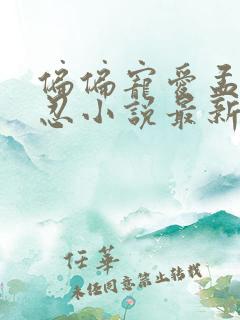 偏偏寵愛孟
忍小說最新
任華
未任同意禁止转载